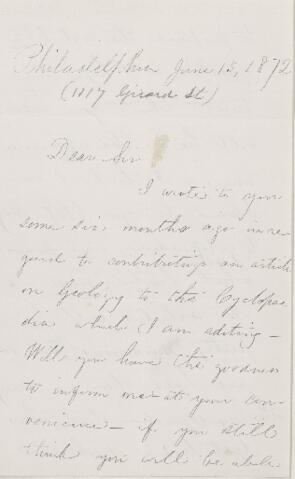 Philadelphia June 15, 1872
(1117 Girard St)
Dear Sir
I wrote to you
some six months ago in re-
gard to contributing an article
on Geology to the Cyclopae-
dia which I am editing —
Will you have the goodness
to inform me at your con-
venience — if you still
think you will be able